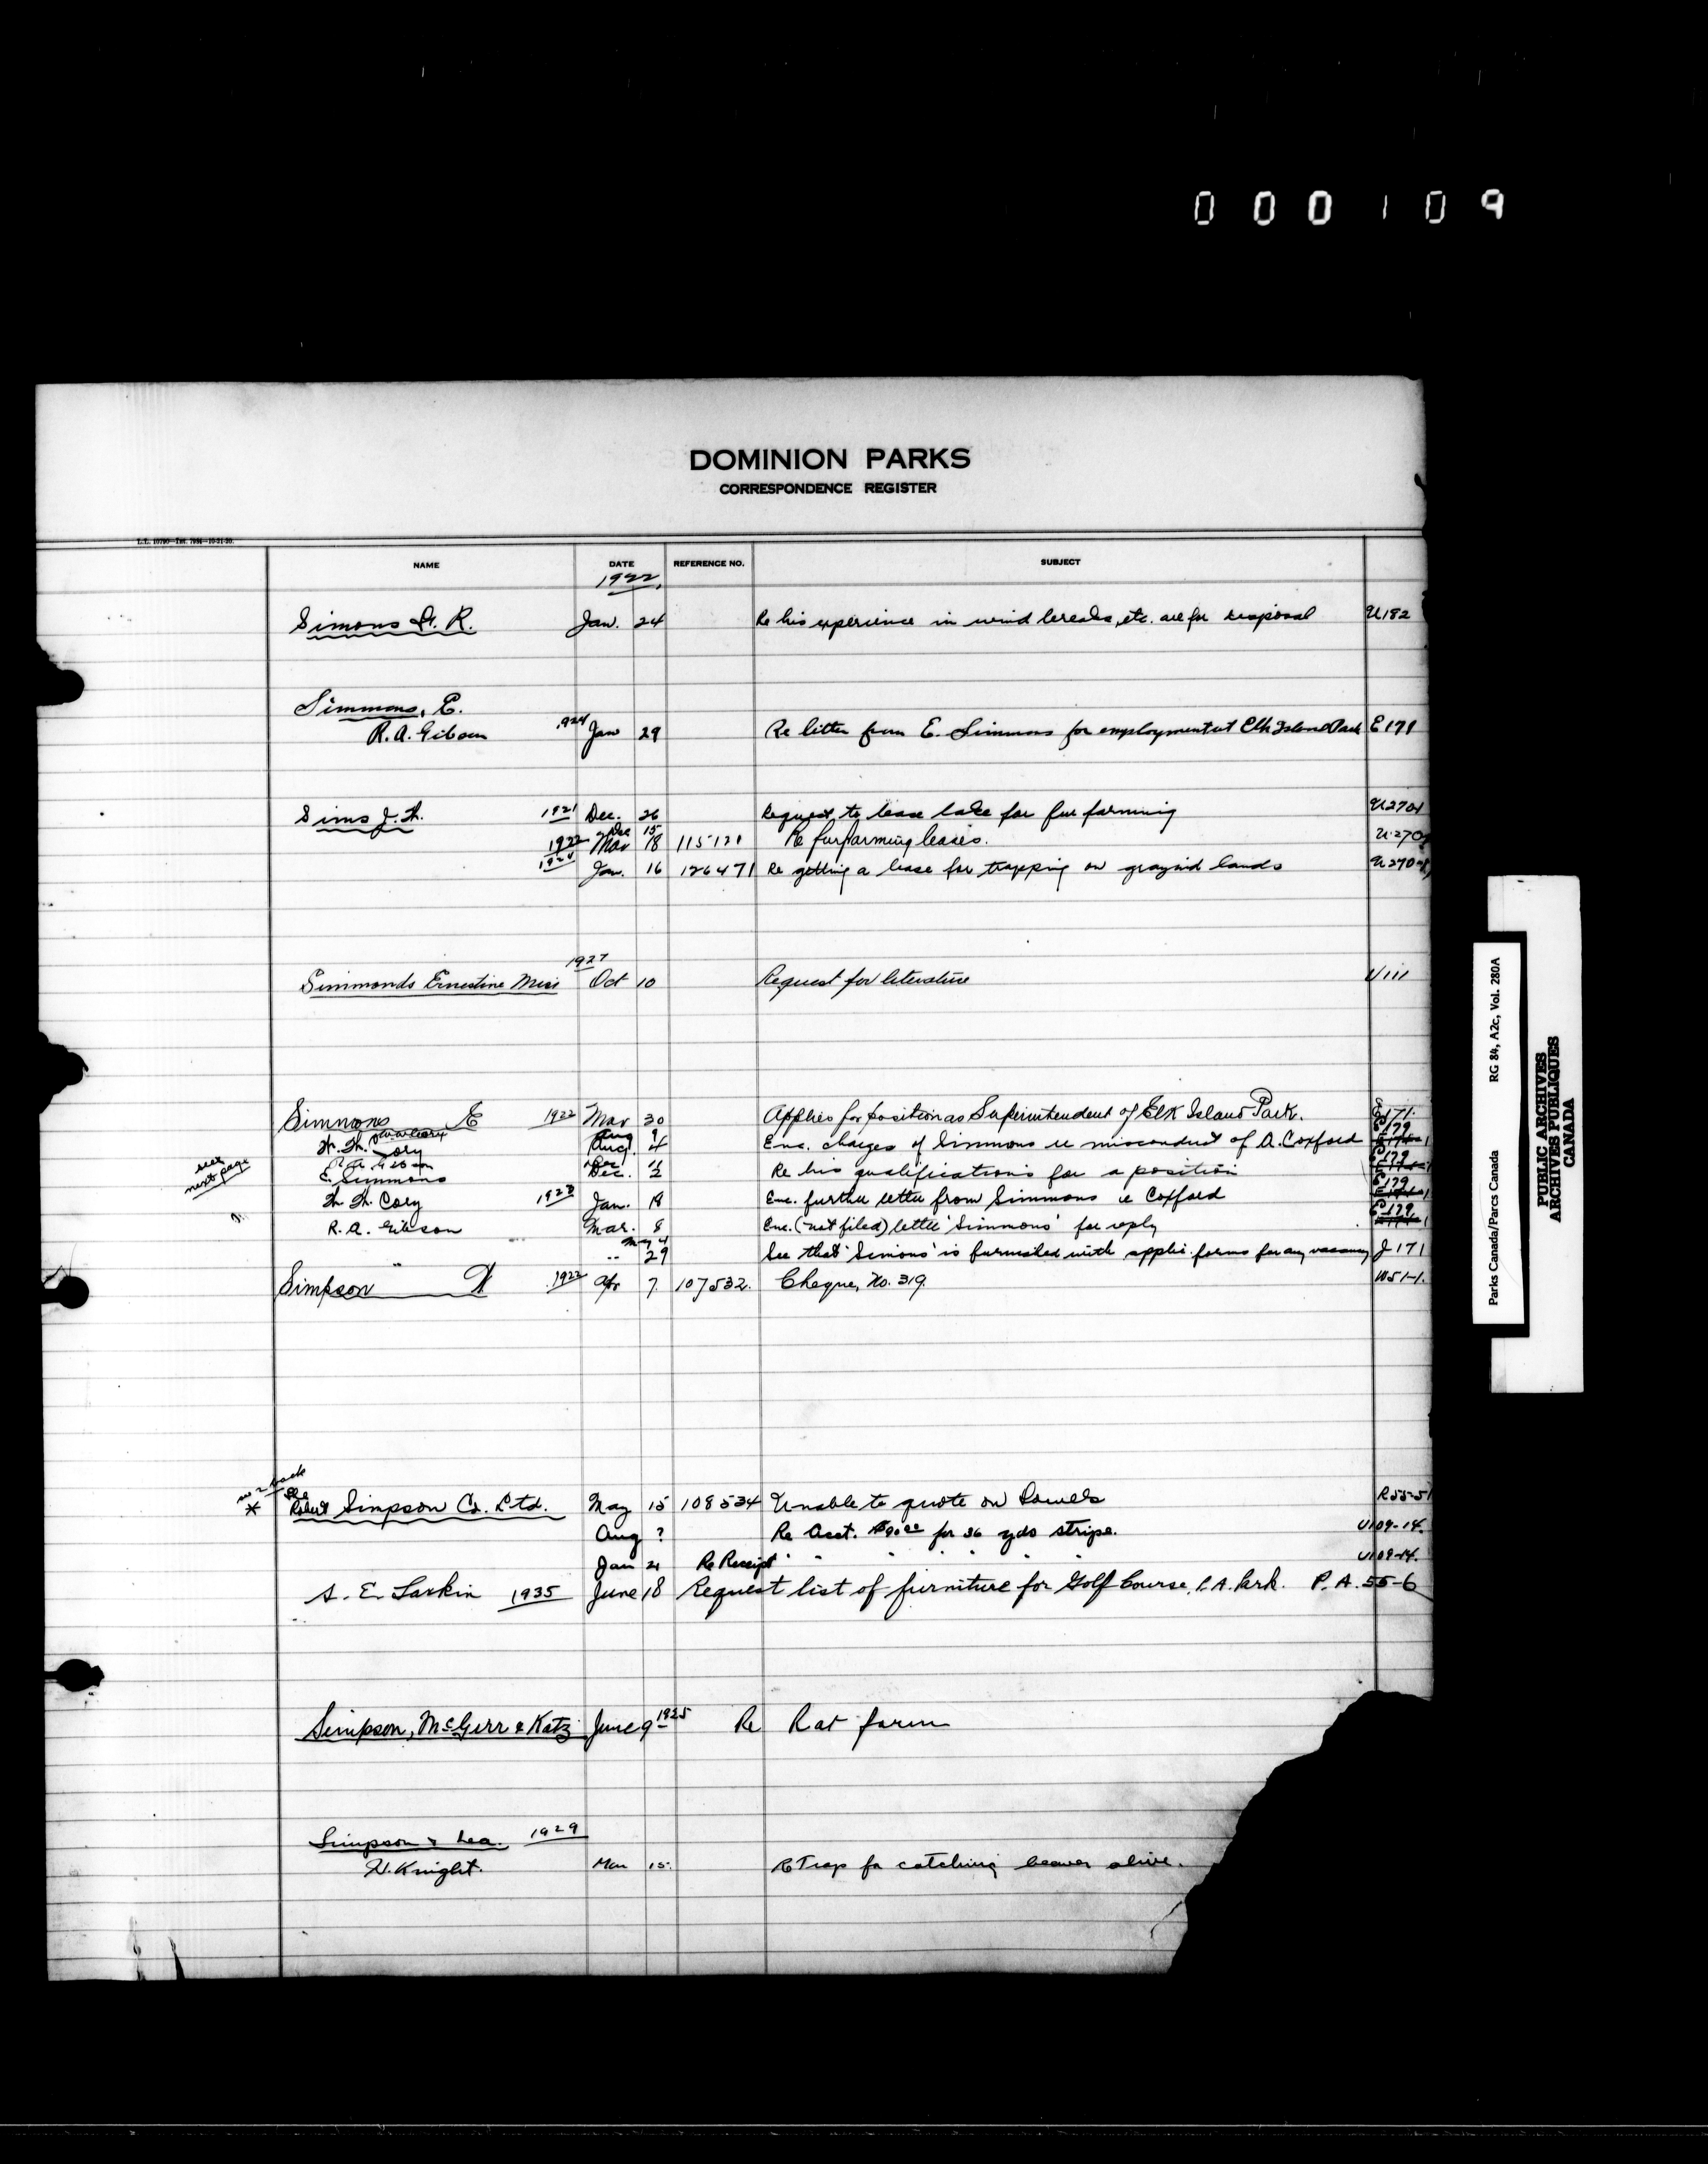 000109
DOMINION PARKS
CORRESPONDENCE REGISTER
NAME DATE REFERENCE NO. SUBJECT
1922
Simons R. Jan. 24 Re his experience in wind breaks, etc. U182
Simmons, E.
R.A. Gibson 1924 Jan 29 Re letter from E. Simmons for employment at Elk Island Park E171
Sims J. H. 1921 Dec. 26 Request to lease lake for fur farming U270
Dec 15
1922 Mar 18 115121 Re fur farming leases. U270
Jan. 16 126471 Re getting a lease for trapping on lands U270
1927
Simmonds Ernestine Miss Oct 10 Request for literature U111
Simmons E 1922 Mar 30 Applies for position as Superintendent of Elk Island Park. E171
Aug 9
W. W. Cory Aug. 4 Enc. charges of Simmons re misconduct of A. Coxford E179
see next page
R. A. Gibson Dec 11
E. Simmons Dec. 2 Re his qualifications for a position E179
W. W. Cory 1923 Jan. 18 Enc. further letter from Simmons re Coxford E179
R. A. Gibson Mar. 8 Enc. (not filed) letter 'Simmons' for reply E179
May 4
" " 29 See that 'Simions' is furnished with applic. forms for any vacancy J171
Simpson W 1922 Apr 7. 107532. Cheque, No. 319. W51-1.
* The Robert Simpson Co. Ltd. May 15 108534 Unable to quote on R55-5
Aug ? Re Acct. for 36 yds stripe. U109-14.
Jan 21 Re Receipt " " " " " U109-14.
S. E. Larkin 1935 June 18 Request list of furniture for Golf Course, P.A. Park. P.A. 55-6
Simpson, McGirr & Katz June 9 1925 Re Rat farm
Simpson & Lea. 1929
H. Knight. Mar 15. Re Trap for catching beaver alive.
Parks Canada/Parcs Canada RG 84, A2c, Vol. 280A
PUBLIC ARCHIVES
ARCHIVES PUBLIQUES
CANADA